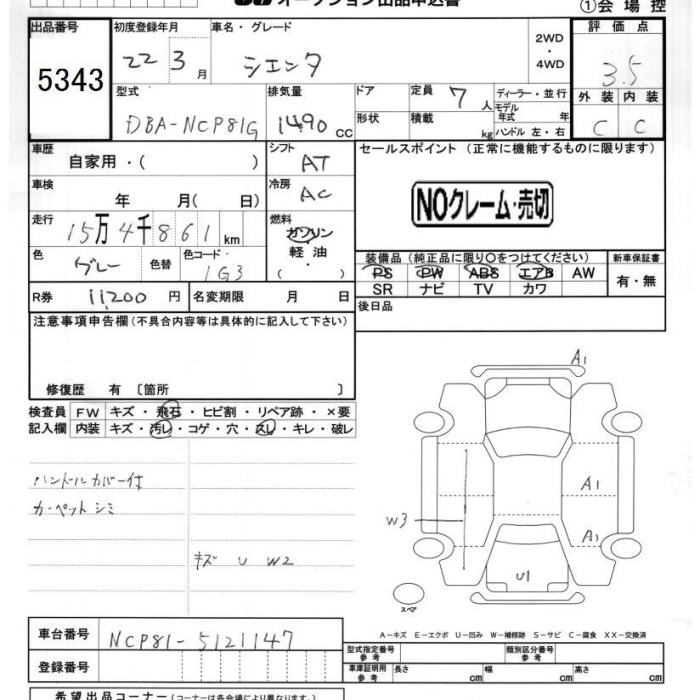 オークション出品申込書 ①会場控
出品番号 初度登録年月 車名・グレード 2WD・4WD 評価点
5343 22 3月 シエンタ 3.5
型式 排気量 ドア 定員 7人 ディーラー・並行 外装 内装
DBA-NCP81G 1490cc 形状 積載 kg モデル年式 年 ハンドル 左・右 C C
車歴 自家用・( ) シフト AT セールスポイント (正常に機能するものに限ります)
車検 年 月( 日) 冷房 AC NOクレーム・売切
走行 15万4千861km 燃料 ガソリン 軽油 ( ・ )
色 グレー 色替 色コード 1G3 装備品 (純正品に限り○をつけてください) 新車保証書
PS PW ABS エアB AW 有・無
SR ナビ TV カワ
R券 11,200円 名変期限 月 日 後日品
注意事項申告欄 (不具合内容等は具体的に記入して下さい)
修復歴 有 〔箇所 〕
検査員 FW キズ・飛石・ヒビ割・リペア跡・×要
記入欄 内装 キズ・汚レ・コゲ・穴・スレ・キレ・破レ
ハンドルカバー付
カーペットシミ
キズ U W2
A1
A1
W3
A1
U1
スペア
A-キズ E-エクボ U-凹み W-補修跡 S-サビ C-腐食 XX-交換済
車台番号 NCP81-5121147
型式指定番号 参考 類別区分番号 参考
登録番号 車庫証明用 参考 長さ cm 幅 cm 高さ cm
希望出品コーナー (コーナーは各会場により異なります)